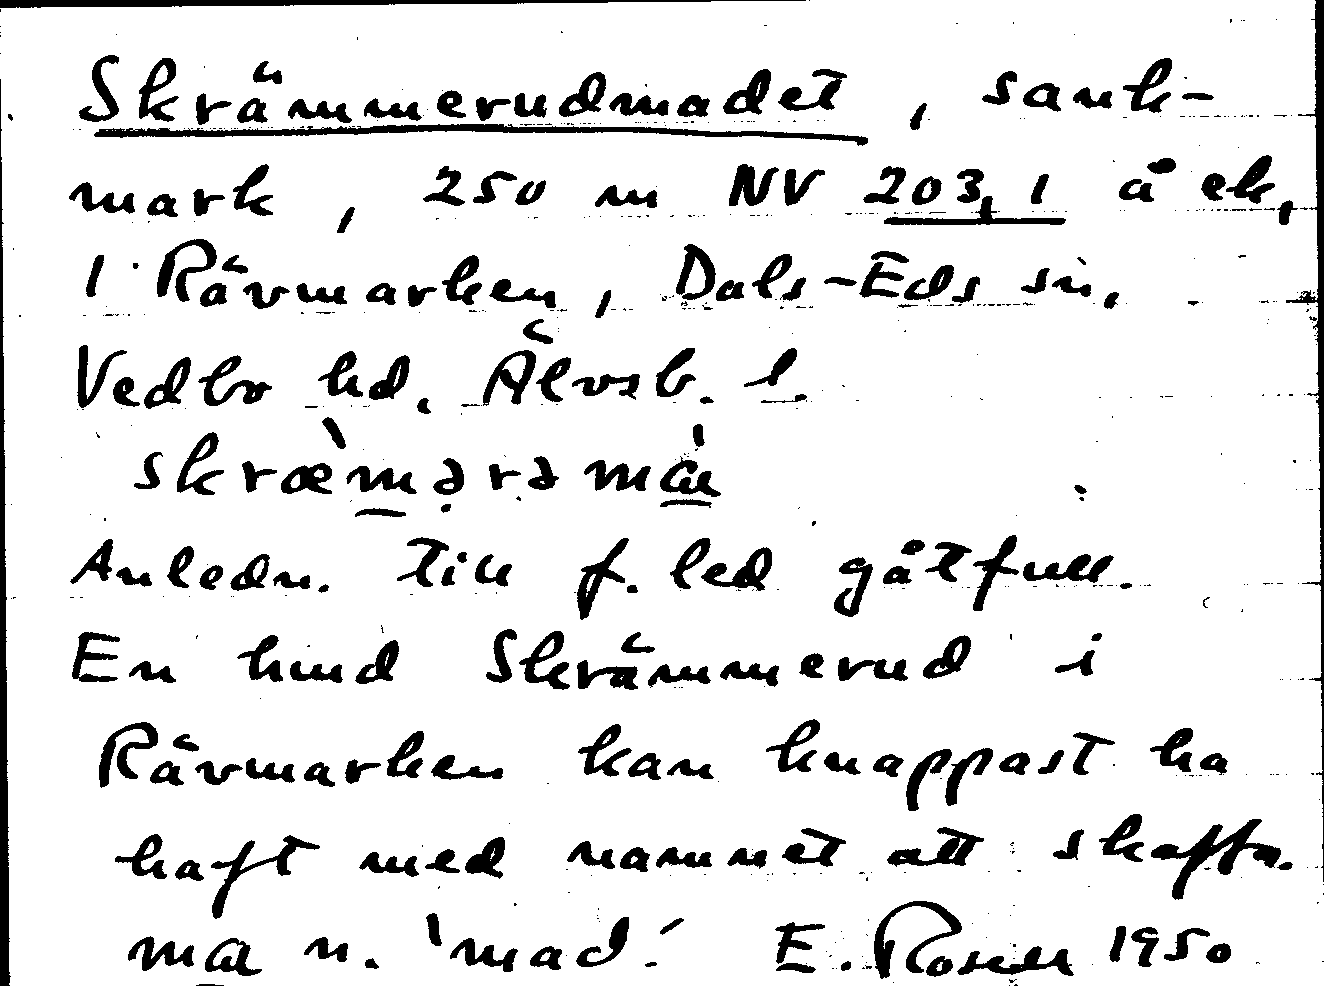 Skrämmerudmadet, sank-
mark, 250 m NV 203,1 å ek.
1 Rävmarken, Dals-Eds sn,
Vedbo hd. Älvsb. l.
skræ̀m̲ərə mä̀
Anledn. till f. led gåtfull.
En hmd Skrämmerud i
Rävmarken kan knappast ha
haft med namnet att skaffa.
mä n. 'mad'. E. Rosell 1950